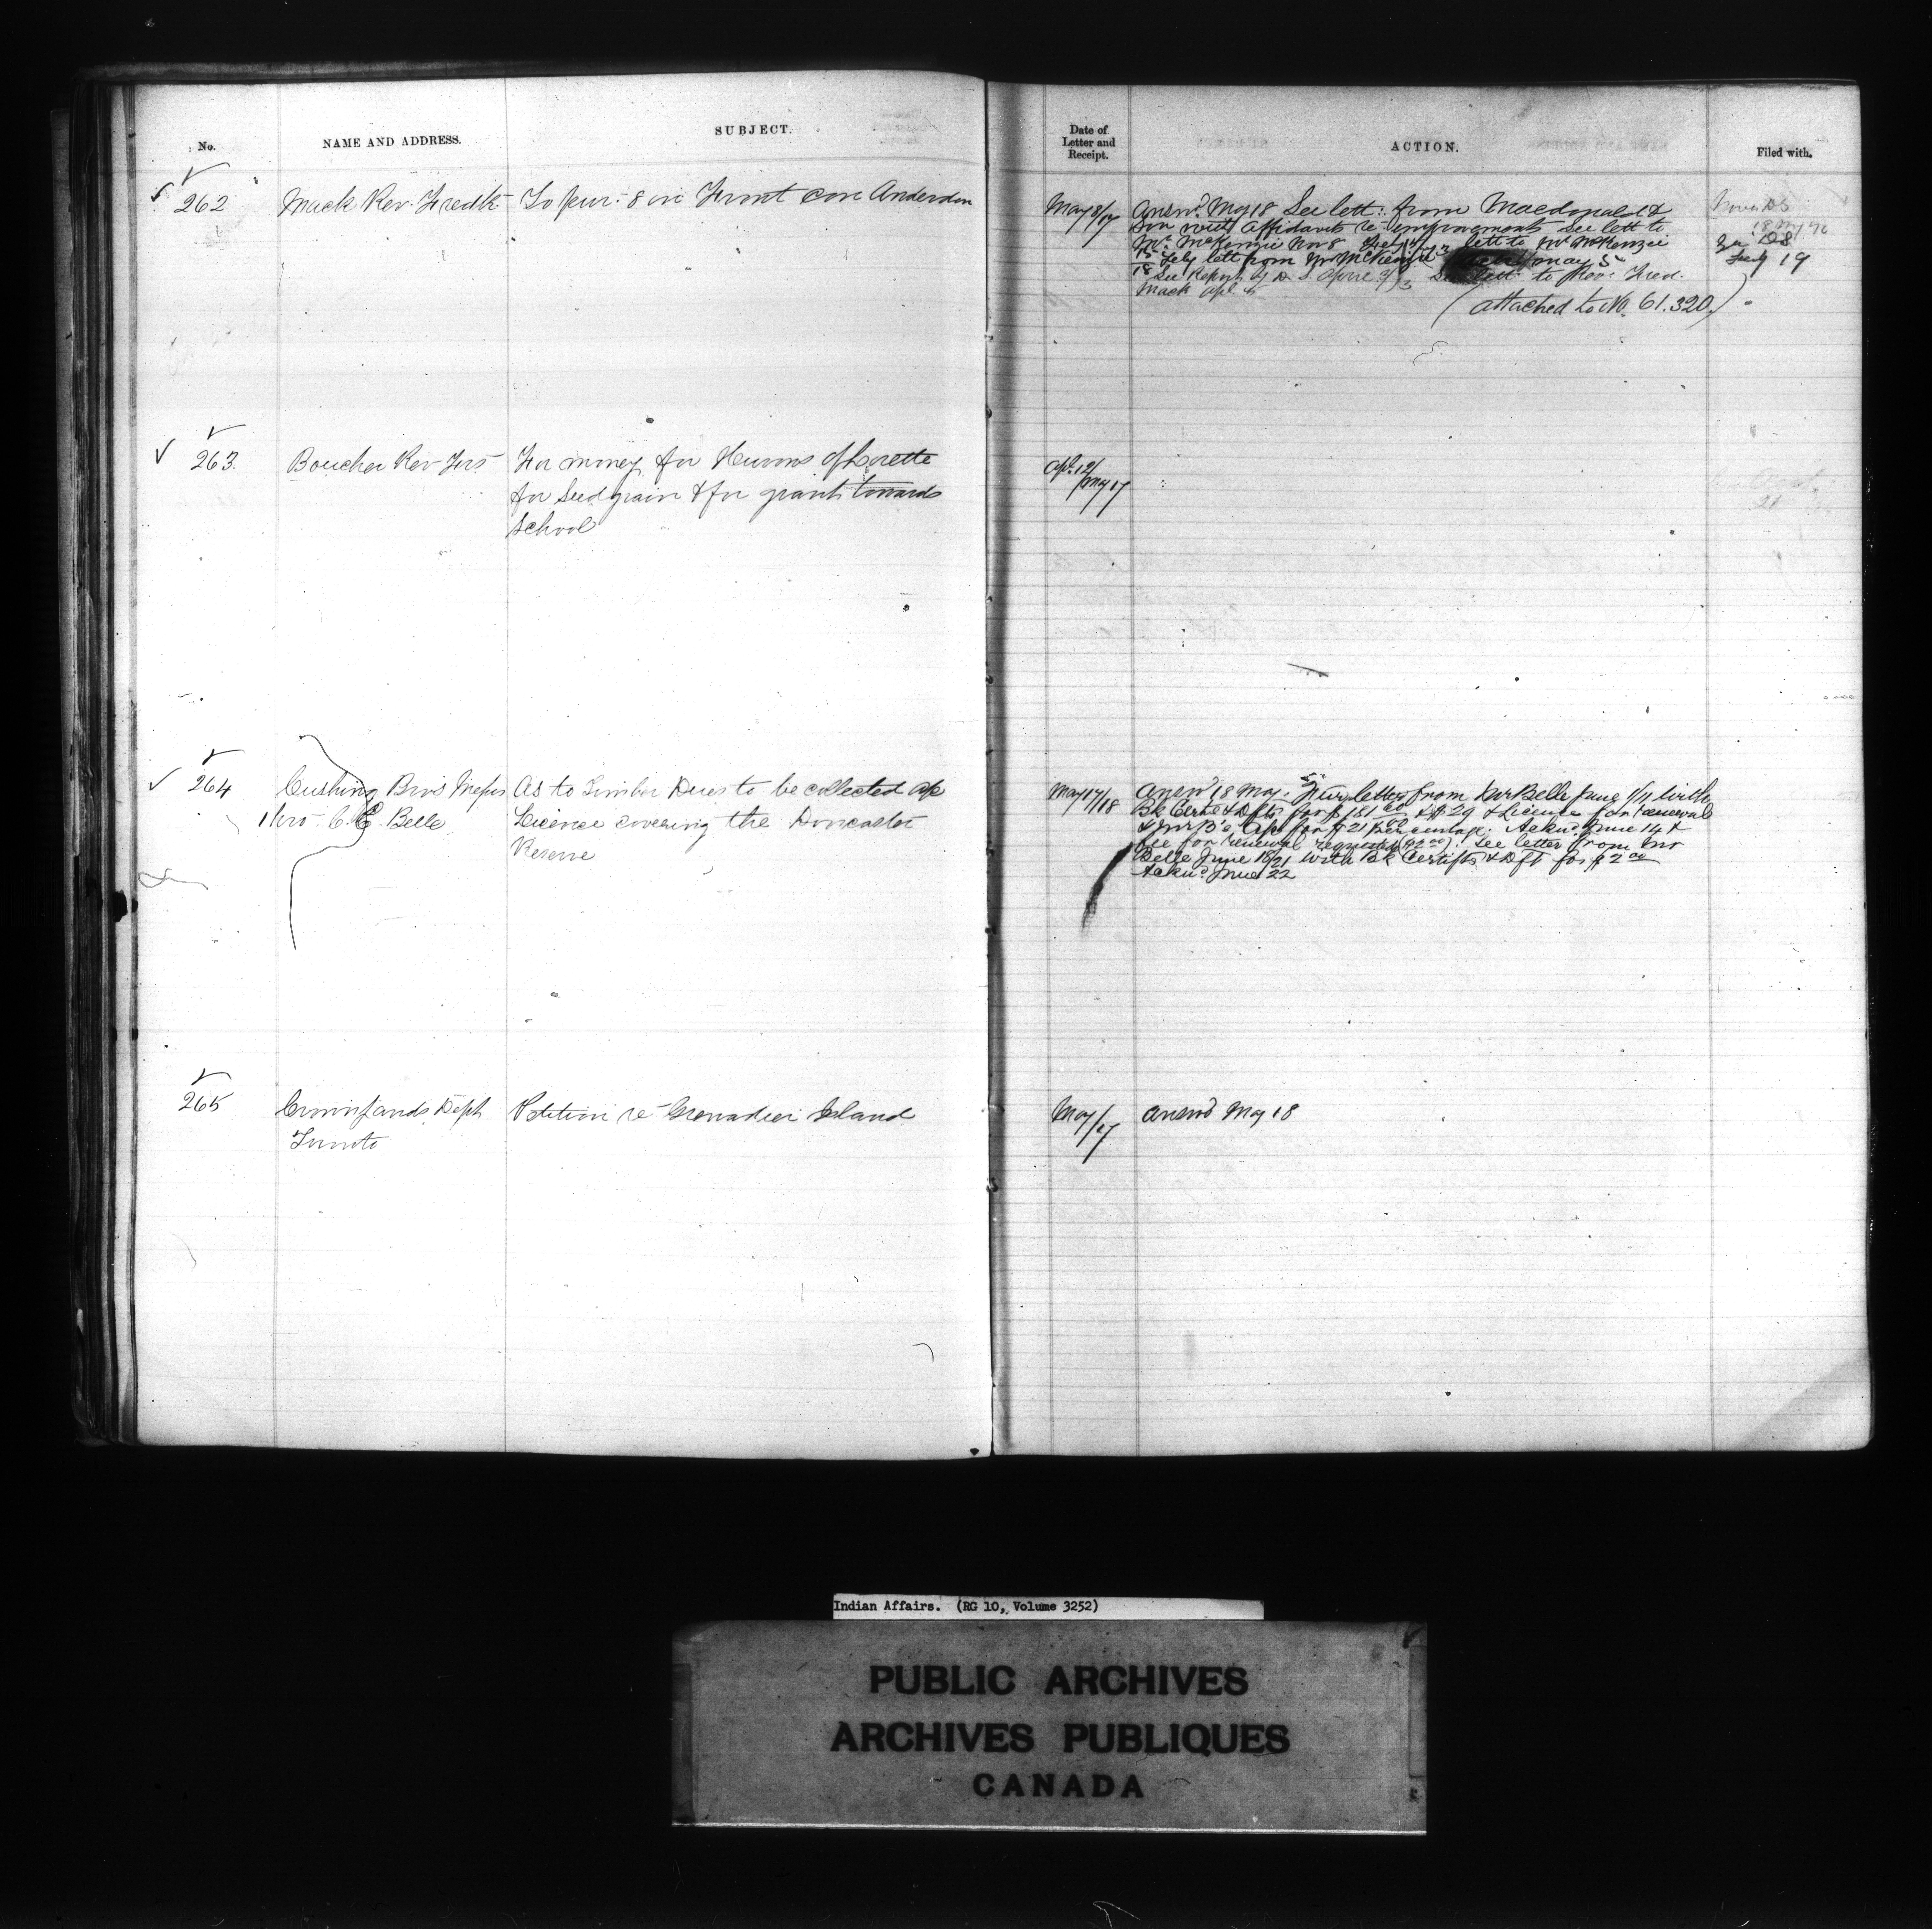 No.
NAME AND ADDRESS.
SUBJECT.
Date of
Letter and
Receipt.
ACTION.
Filed with.
262
Mack Rev. Fredk
To pur. 8 in Front con Anderdon
Answd. May 18 See lett. from Macdonald &
Son with Affidavits re improvements See lett to
Mr. McKenzie Nov 8 lett to Mr McKenzie
Feby lett from Mr McKenzie May 5
See Report of D. S. See lett to Rev. Fred.
Mack Apl
(attached to No. 61.320.)
Feby 19
263
Boucher Rev Frs
For money for Hurons of Lorette
for Seed grain & for grant towards
School
Apl. 12/
May 17
264
Cushing Bros Messrs
thro. C. E. Belle
As to Timber Dues to be collected
Licence covering the Doncaster
Reserve
May 17/18
Answd 18 May. letter from Mr Belle June 9/11 with
Bk Certe & Dfts for $ 181 & $ 29 & License for renewal
& Mr B's for $ 21 percentage. Acknd. June 14 &
fee for renewal requested ($2.00). See letter from Mr
Belle June 18/21 with Bk Certifte & Dft for $ 2 00
Acknd. June 22
265
Crown Lands Dept
Toronto
Petition re Grenadier Island
May/17
Answd May 18
Indian Affairs. (RG 10, Volume 3252)
PUBLIC ARCHIVES
ARCHIVES PUBLIQUES
CANADA